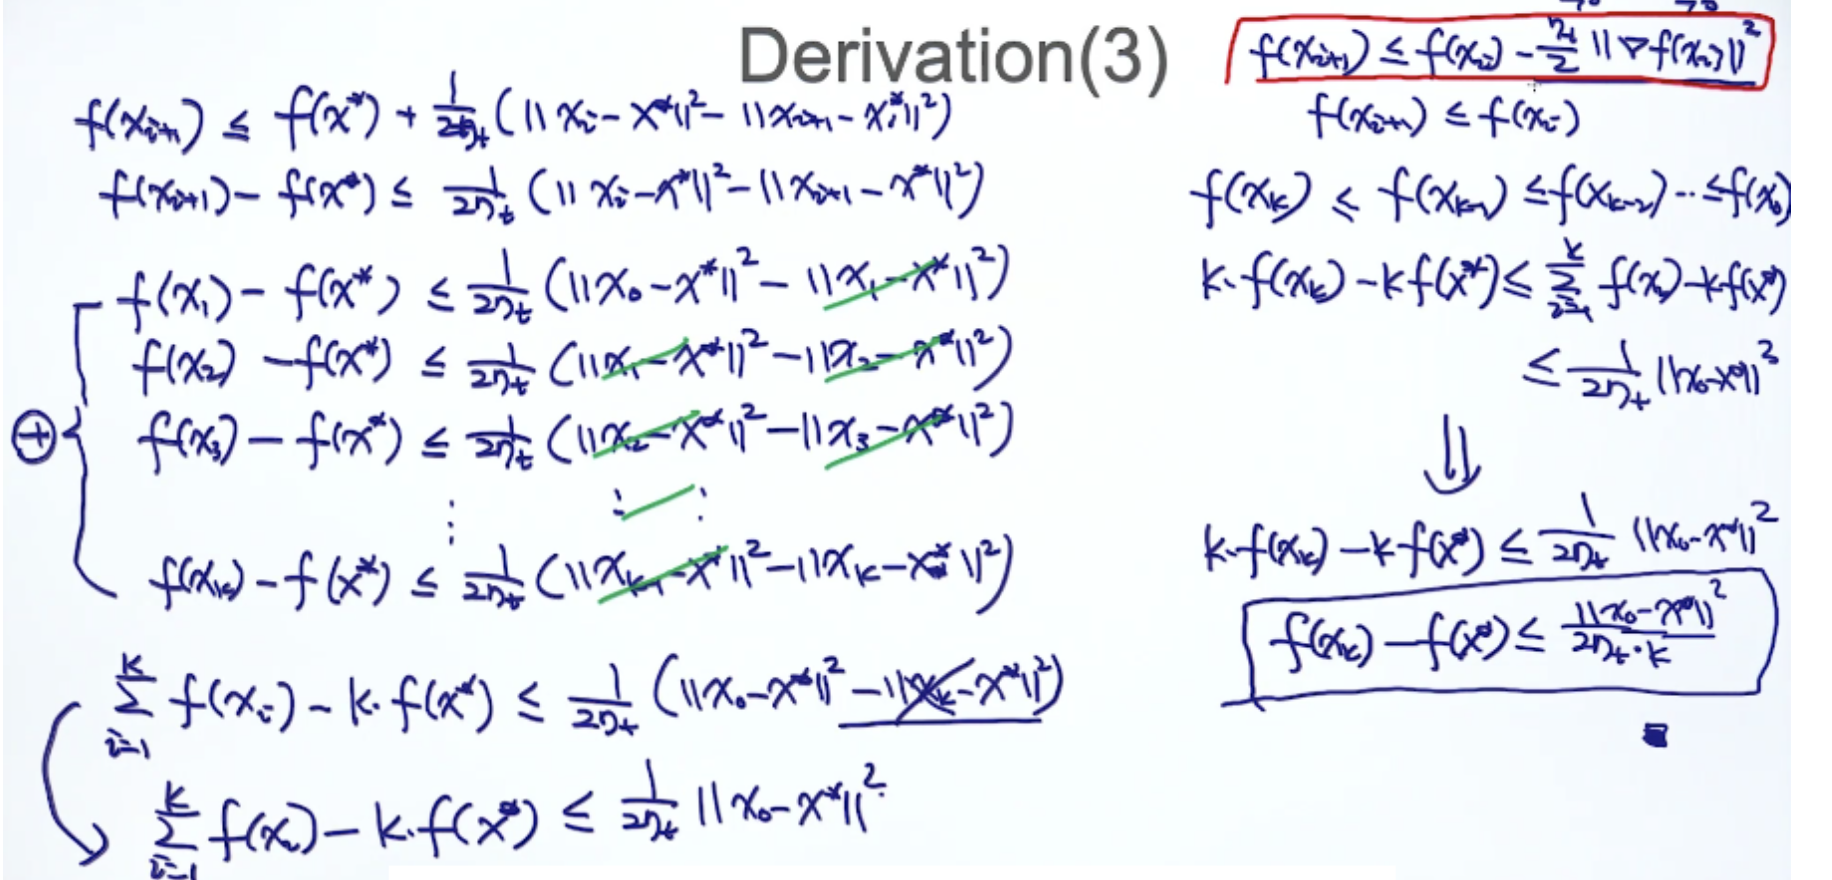 Derivation(3)
f(x_{i+1}) ≤ f(x*) + 1/(2η_t) (||x_i - x*||² - ||x_{i+1} - x*||²)
f(x_{i+1}) - f(x*) ≤ 1/(2η_t) (||x_i - x*||² - ||x_{i+1} - x*||²)
f(x_1) - f(x*) ≤ 1/(2η_t) (||x_0 - x*||² - ||x_1 - x*||²)
f(x_2) - f(x*) ≤ 1/(2η_t) (||x_1 - x*||² - ||x_2 - x*||²)
⊕ { f(x_3) - f(x*) ≤ 1/(2η_t) (||x_2 - x*||² - ||x_3 - x*||²)
⋮ ⋮ ⋮
f(x_k) - f(x*) ≤ 1/(2η_t) (||x_{k-1} - x*||² - ||x_k - x*||²)
∑_{i=1}^{k} f(x_i) - k·f(x*) ≤ 1/(2η_t) (||x_0 - x*||² - ||x_k - x*||²)
∑_{i=1}^{k} f(x_i) - k·f(x*) ≤ 1/(2η_t) ||x_0 - x*||²
f(x_{i+1}) ≤ f(x_i) - η_t/2 ||∇f(x_i)||²
f(x_{i+1}) ≤ f(x_i)
f(x_k) ≤ f(x_{k-1}) ≤ f(x_{k-2}) ... ≤ f(x_0)
k·f(x_k) - k f(x*) ≤ ∑_{i=1}^{k} f(x_i) - k f(x*)
≤ 1/(2η_t) ||x_0 - x*||²
⇓
k·f(x_k) - k f(x*) ≤ 1/(2η_t) ||x_0 - x*||²
f(x_k) - f(x*) ≤ ||x_0 - x*||² / (2η_t·k)